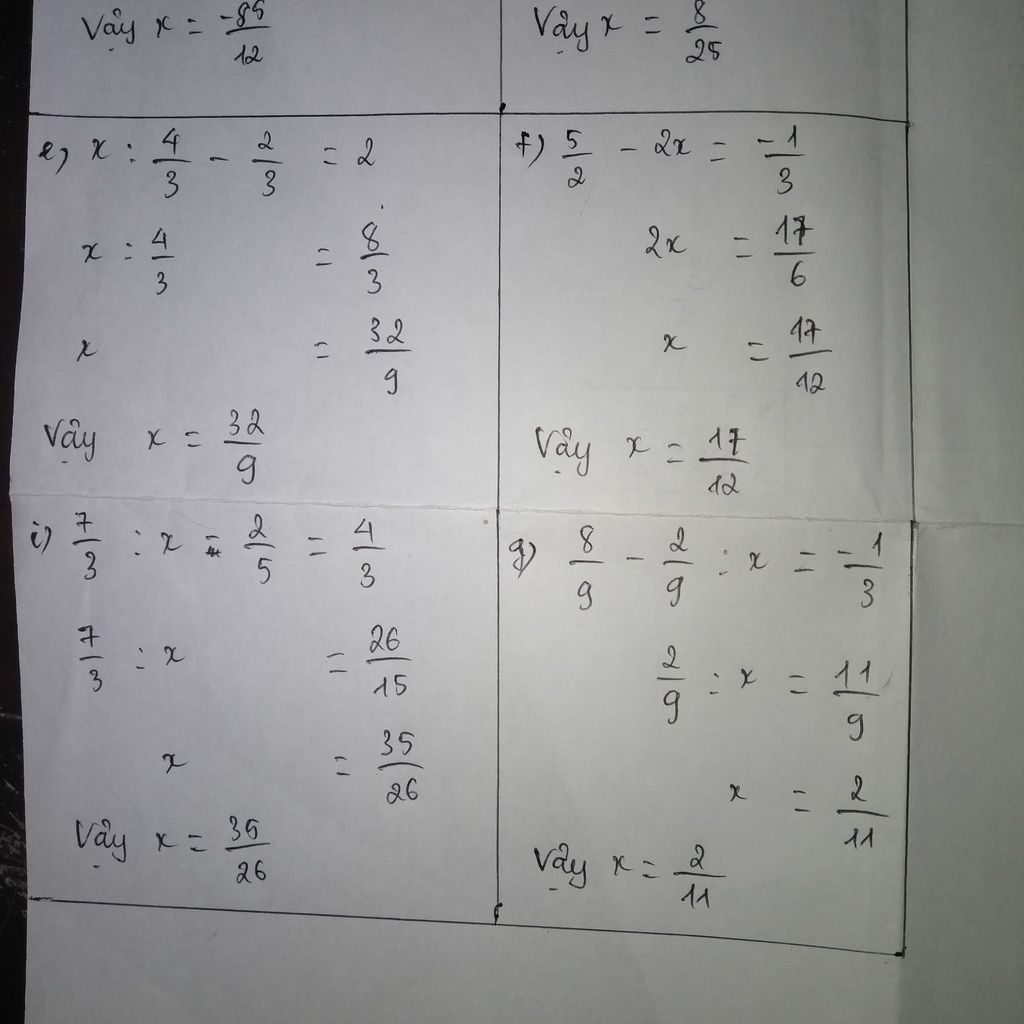 Vậy x = -85/12
Vậy x = 8/25
e) x : 4/3 - 2/3 = 2
x : 4/3 = 8/3
x = 32/9
Vậy x = 32/9
f) 5/2 - 2x = -1/3
2x = 17/6
x = 17/12
Vậy x = 17/12
i) 7/3 : x = 2/5 = 4/3
7/3 : x = 26/15
x = 35/26
Vậy x = 35/26
g) 8/9 - 2/9 : x = -1/3
2/9 : x = 11/9
x = 2/11
Vậy x = 2/11